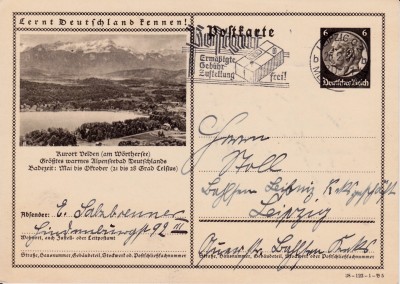 Lernt Deutschland kennen!
Postkarte
Postgut
Ermäßigte
Gebühr
Zustellung frei!
LEIPZIG
b
6 6
Deutsches Reich
Kurort Velden (am Wörthersee)
Größtes warmes Alpenseebad Deutschlands
Badezeit: Mai bis Oktober (21 bis 28 Grad Celsius)
Absender: E. Salzbrenner
Hindenburgst 92 III
Wohnort, auch Zustell- oder Leitpostamt
Straße, Hausnummer, Gebäudeteil, Stockwerk od. Postschließfachnummer
Herrn
Stoll
Bahlsen Leibniz
Leipzig
Bahlsen Keks
Straße, Hausnummer, Gebäudeteil, Stockwerk oder Postschließfachnummer